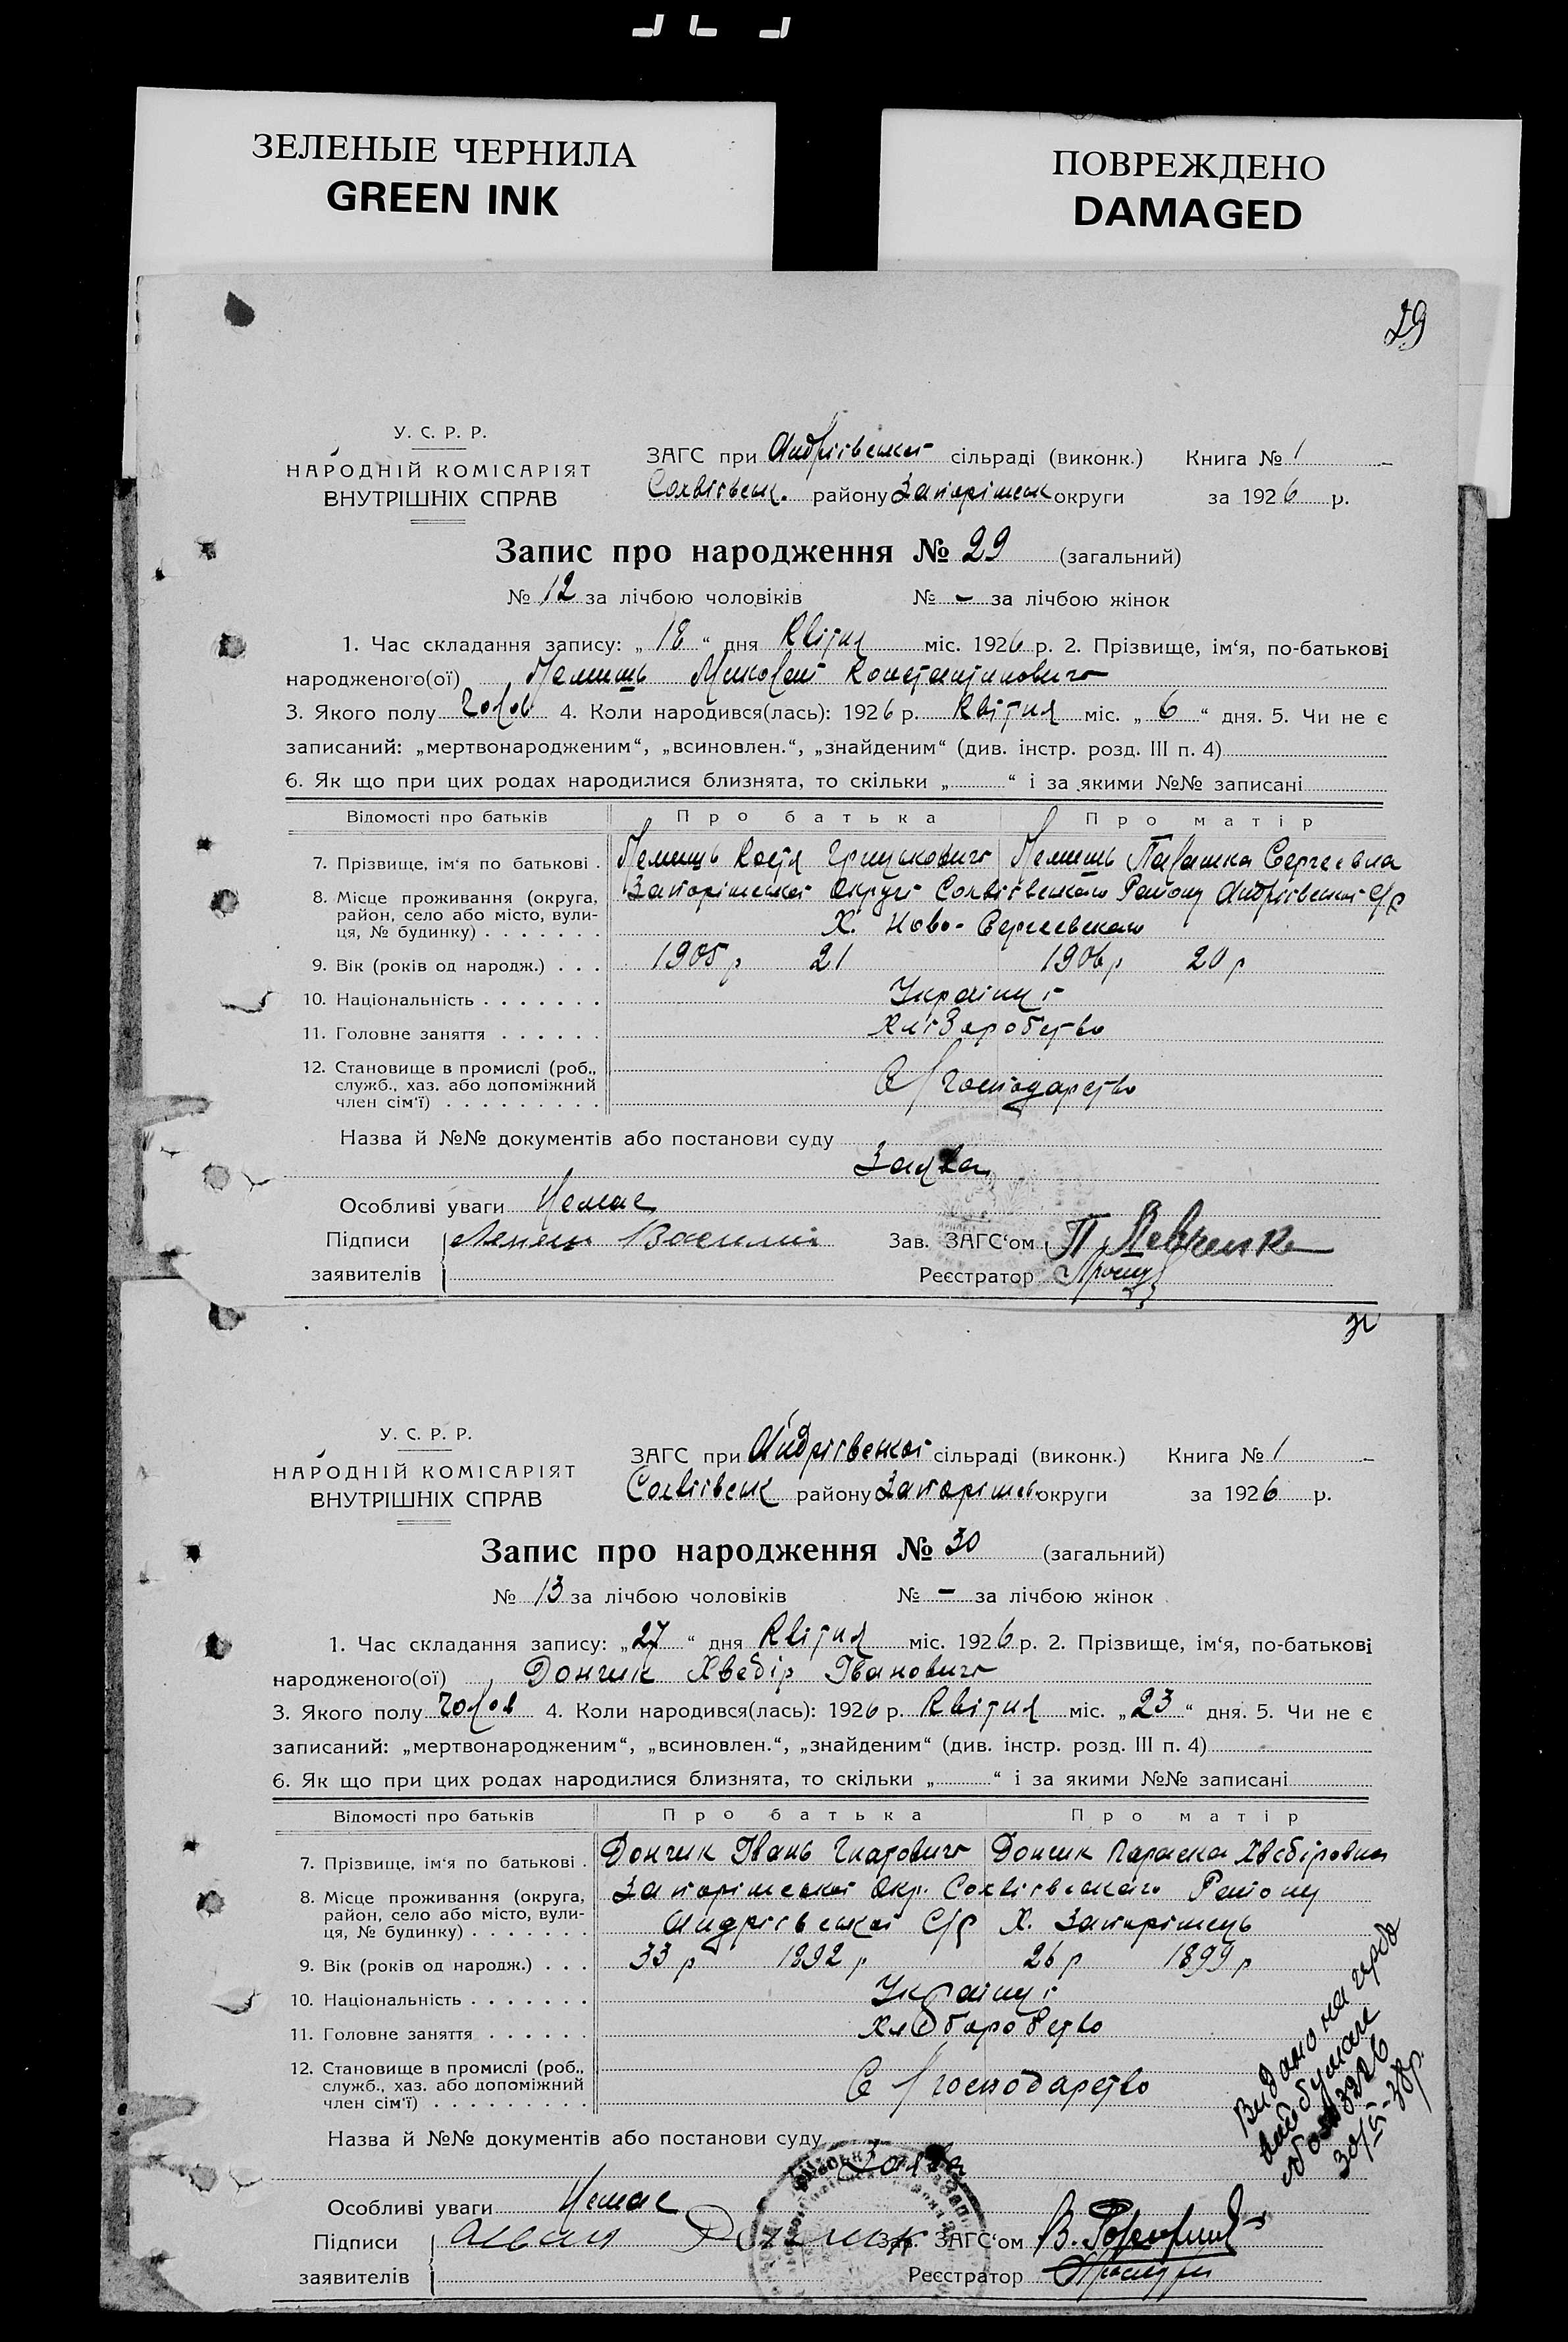 ЗЕЛЕНЫЕ ЧЕРНИЛА
GREEN INK
ПОВРЕЖДЕНО
DAMAGED
29
У. С. Р. Р.
НАРОДНІЙ КОМІСАРІЯТ
ВНУТРІШНІХ СПРАВ
ЗАГС при Андріївській сільраді (виконк.) Книга № 1
району Запоріжськ округи за 1926 р.
Запис про народження № 29 (загальний)
№ 12 за лічбою чоловіків № - за лічбою жінок
1. Час складання запису: „ 18 “ дня Квітня міс. 1926 р. 2. Прізвище, ім‘я, по-батькові
народженого(ої) Миколай Константинович
3. Якого полу Чолов 4. Коли народився(лась): 1926 р. Квітня міс. „ 6 “ дня. 5. Чи не є
записаний: „мертвонародженим“, „всиновлен.“, „знайденим“ (див. інстр. розд. III п. 4)
6. Як що при цих родах народилися близнята, то скільки „ “ і за якими №№ записані
Відомості про батьків Про батька Про матір
7. Прізвище, ім‘я по батькові . Костя Грицькович Палашка Сергеевна
8. Місце проживання (округа, район, село або місто, вулиця, № будинку) Запоріжської Округи Району Андріївської С/р
Х. Ново-Сергеевського
9. Вік (років од народж.) . . . 1905 р 21 1906 р 20 р
10. Національність Українці
11. Головне заняття Хліборобство
12. Становище в промислі (роб., служб., хаз. або допоміжний член сім‘ї) С/господарство
Назва й №№ документів або постанови суду
Заява
Особливі уваги Немає
Підписи Василий Зав. ЗАГС‘ом П Шевченко
заявителів Реєстратор
30
У. С. Р. Р.
НАРОДНІЙ КОМІСАРІЯТ
ВНУТРІШНІХ СПРАВ
ЗАГС при Андріївської сільраді (виконк.) Книга № 1
району Запоріжськ округи за 1926 р.
Запис про народження № 30 (загальний)
№ 13 за лічбою чоловіків № - за лічбою жінок
1. Час складання запису: „ 27 “ дня Квітня міс. 1926 р. 2. Прізвище, ім‘я, по-батькові
народженого(ої) Дончик Хведір Іванович
3. Якого полу Чолов 4. Коли народився(лась): 1926 р. Квітня міс. „ 23 “ дня. 5. Чи не є
записаний: „мертвонародженим“, „всиновлен.“, „знайденим“ (див. інстр. розд. III п. 4)
6. Як що при цих родах народилися близнята, то скільки „ “ і за якими №№ записані
Відомості про батьків Про батька Про матір
7. Прізвище, ім‘я по батькові . Дончик Івань Гнатович Дончик Параска Хведіровна
8. Місце проживання (округа, район, село або місто, вулиця, № будинку) Запоріжської Окр. Району
Андріївської С/р Х. Запоріжець
9. Вік (років од народж.) . . . 33 р 1892 р 26 р 1899 р
10. Національність Українці
11. Головне заняття Хліборобство
12. Становище в промислі (роб., служб., хаз. або допоміжний член сім‘ї) С/господарство
Назва й №№ документів або постанови суду
Заява
Особливі уваги Немає
Підписи Дончик Зав. ЗАГС‘ом В.
заявителів Реєстратор
Видано на